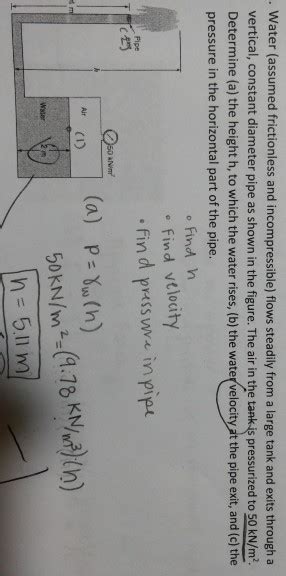 . Water (assumed frictionless and incompressible) flows steadily from a large tank and exits through a
vertical, constant diameter pipe as shown in the figure. The air in the tank is pressurized to 50 kN/m².
Determine (a) the height h, to which the water rises, (b) the water velocity at the pipe exit, and (c) the
pressure in the horizontal part of the pipe.
• Find h
• Find velocity
• Find pressure in pipe
50 kN/m²
Air
(1)
Water
2 m
Pipe
exit
(2)
h
4 m
(a) P = γw (h)
50 kN/m² = (9.78 kN/m³)(h)
h = 5.11 m